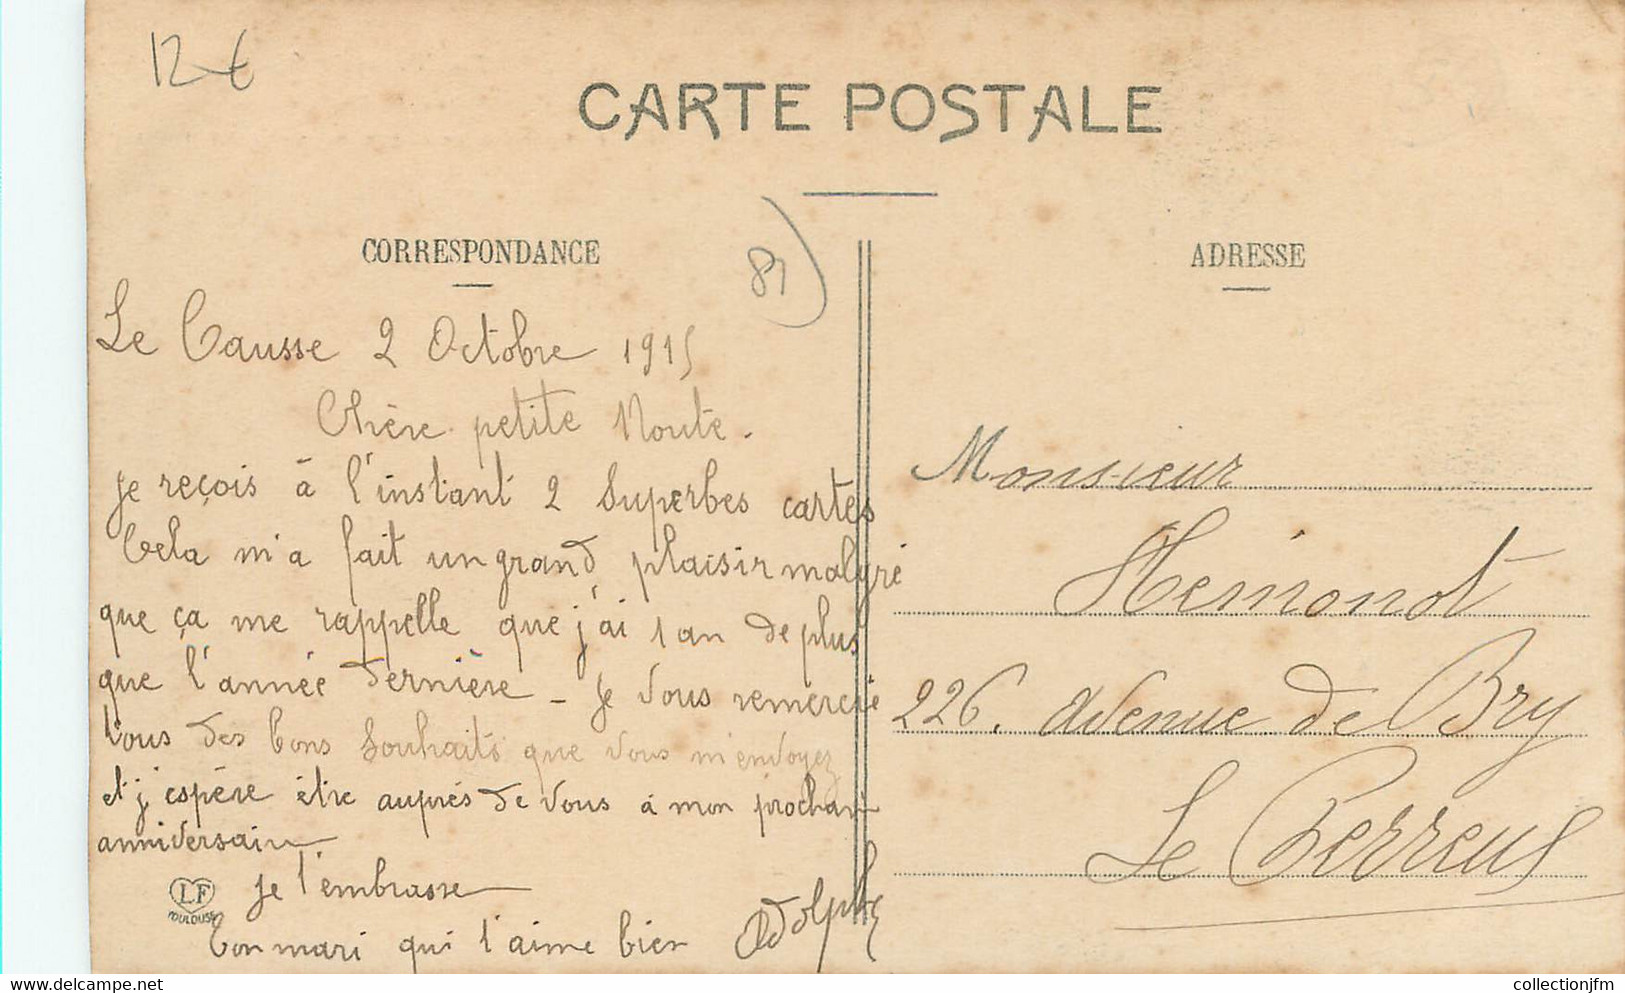 12 €
CARTE POSTALE
CORRESPONDANCE
81)
ADRESSE
Le Causse 2 Octobre 1915
Chère petite Noute.
Je reçois à l'instant 2 superbes cartes
Cela m'a fait un grand plaisir malgré
que ça me rappelle que j'ai 1 an de plus
que l'année dernière – Je vous remercie
tous des bons souhaits que vous m'envoyez
et j'espère être auprès de vous à mon prochain
anniversaire
Je t'embrasse
Ton mari qui t'aime bien Adolphe
LF
TOULOUSE
Monsieur
Hémonot
226. Avenue de Bry
Le Perreux
collectionjfm